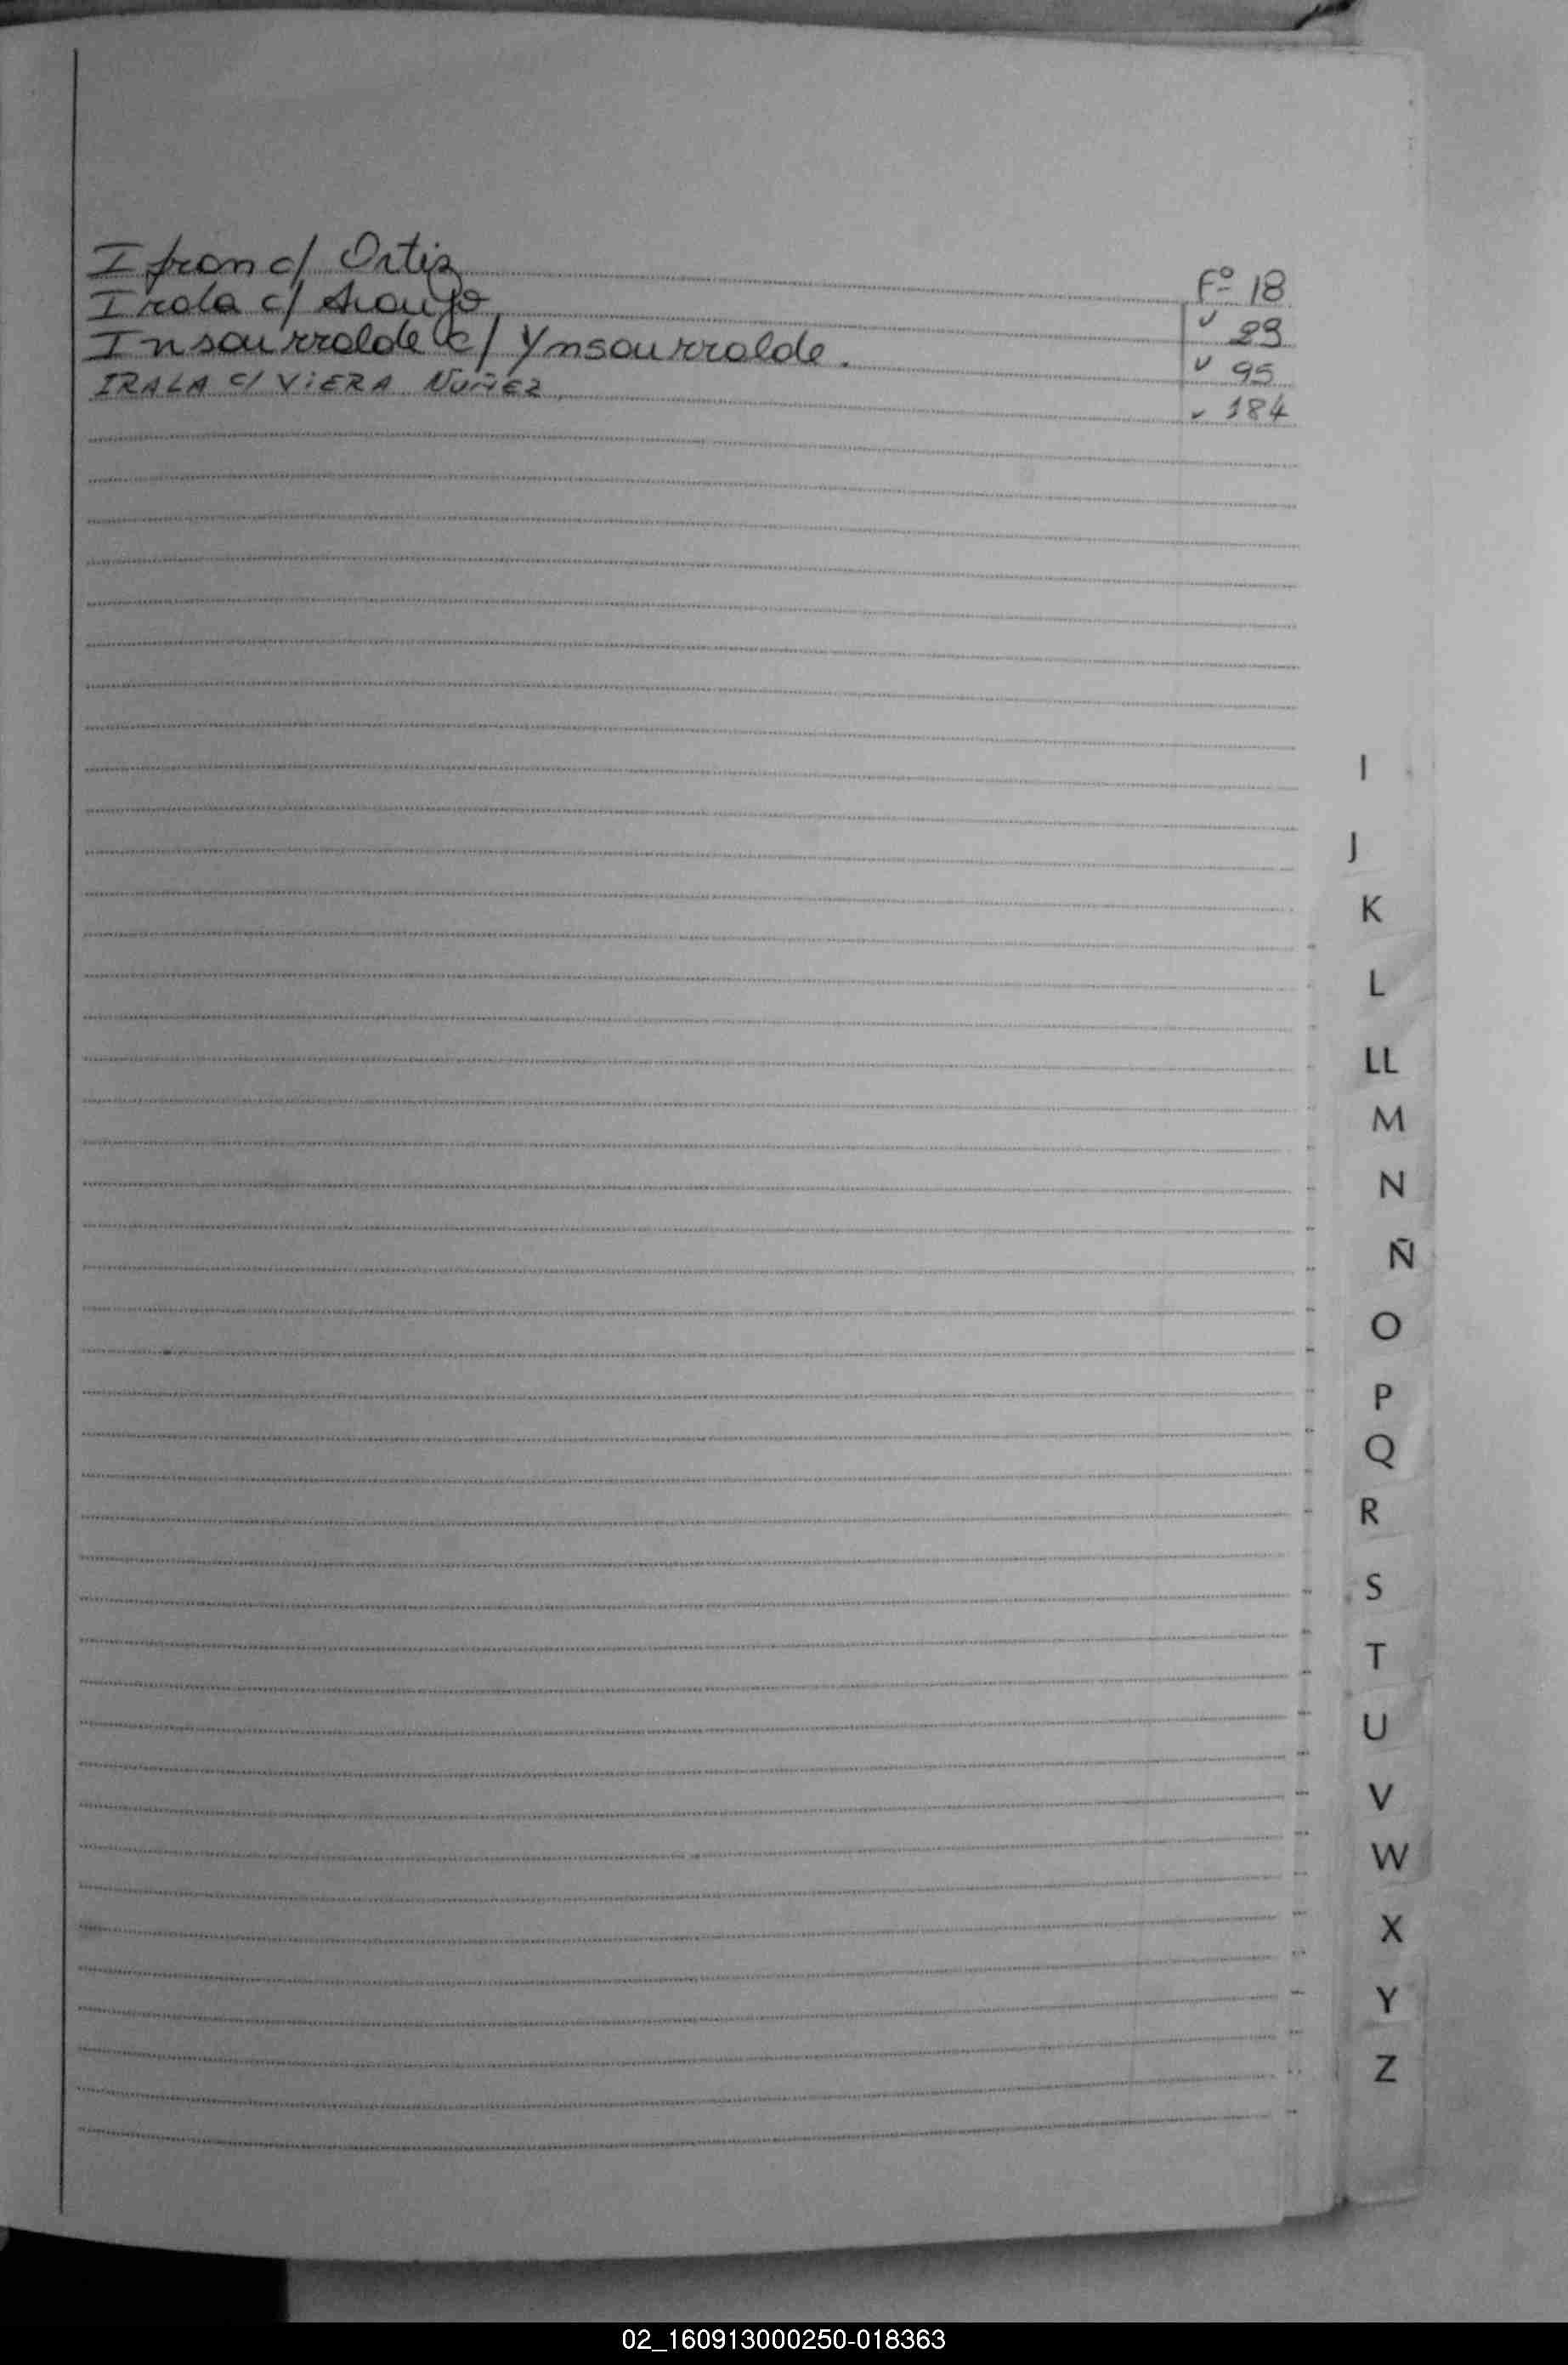 Ifran c/ Ortiz Fº 18
Irala c/ Araujo " 29
Insaurralde c/ Ynsaurralde. " 95
IRALA c/ ViERA NUÑEZ " 184
I
J
K
L
LL
M
N
Ñ
O
P
Q
R
S
T
U
V
W
X
Y
Z
02_160913000250-018363